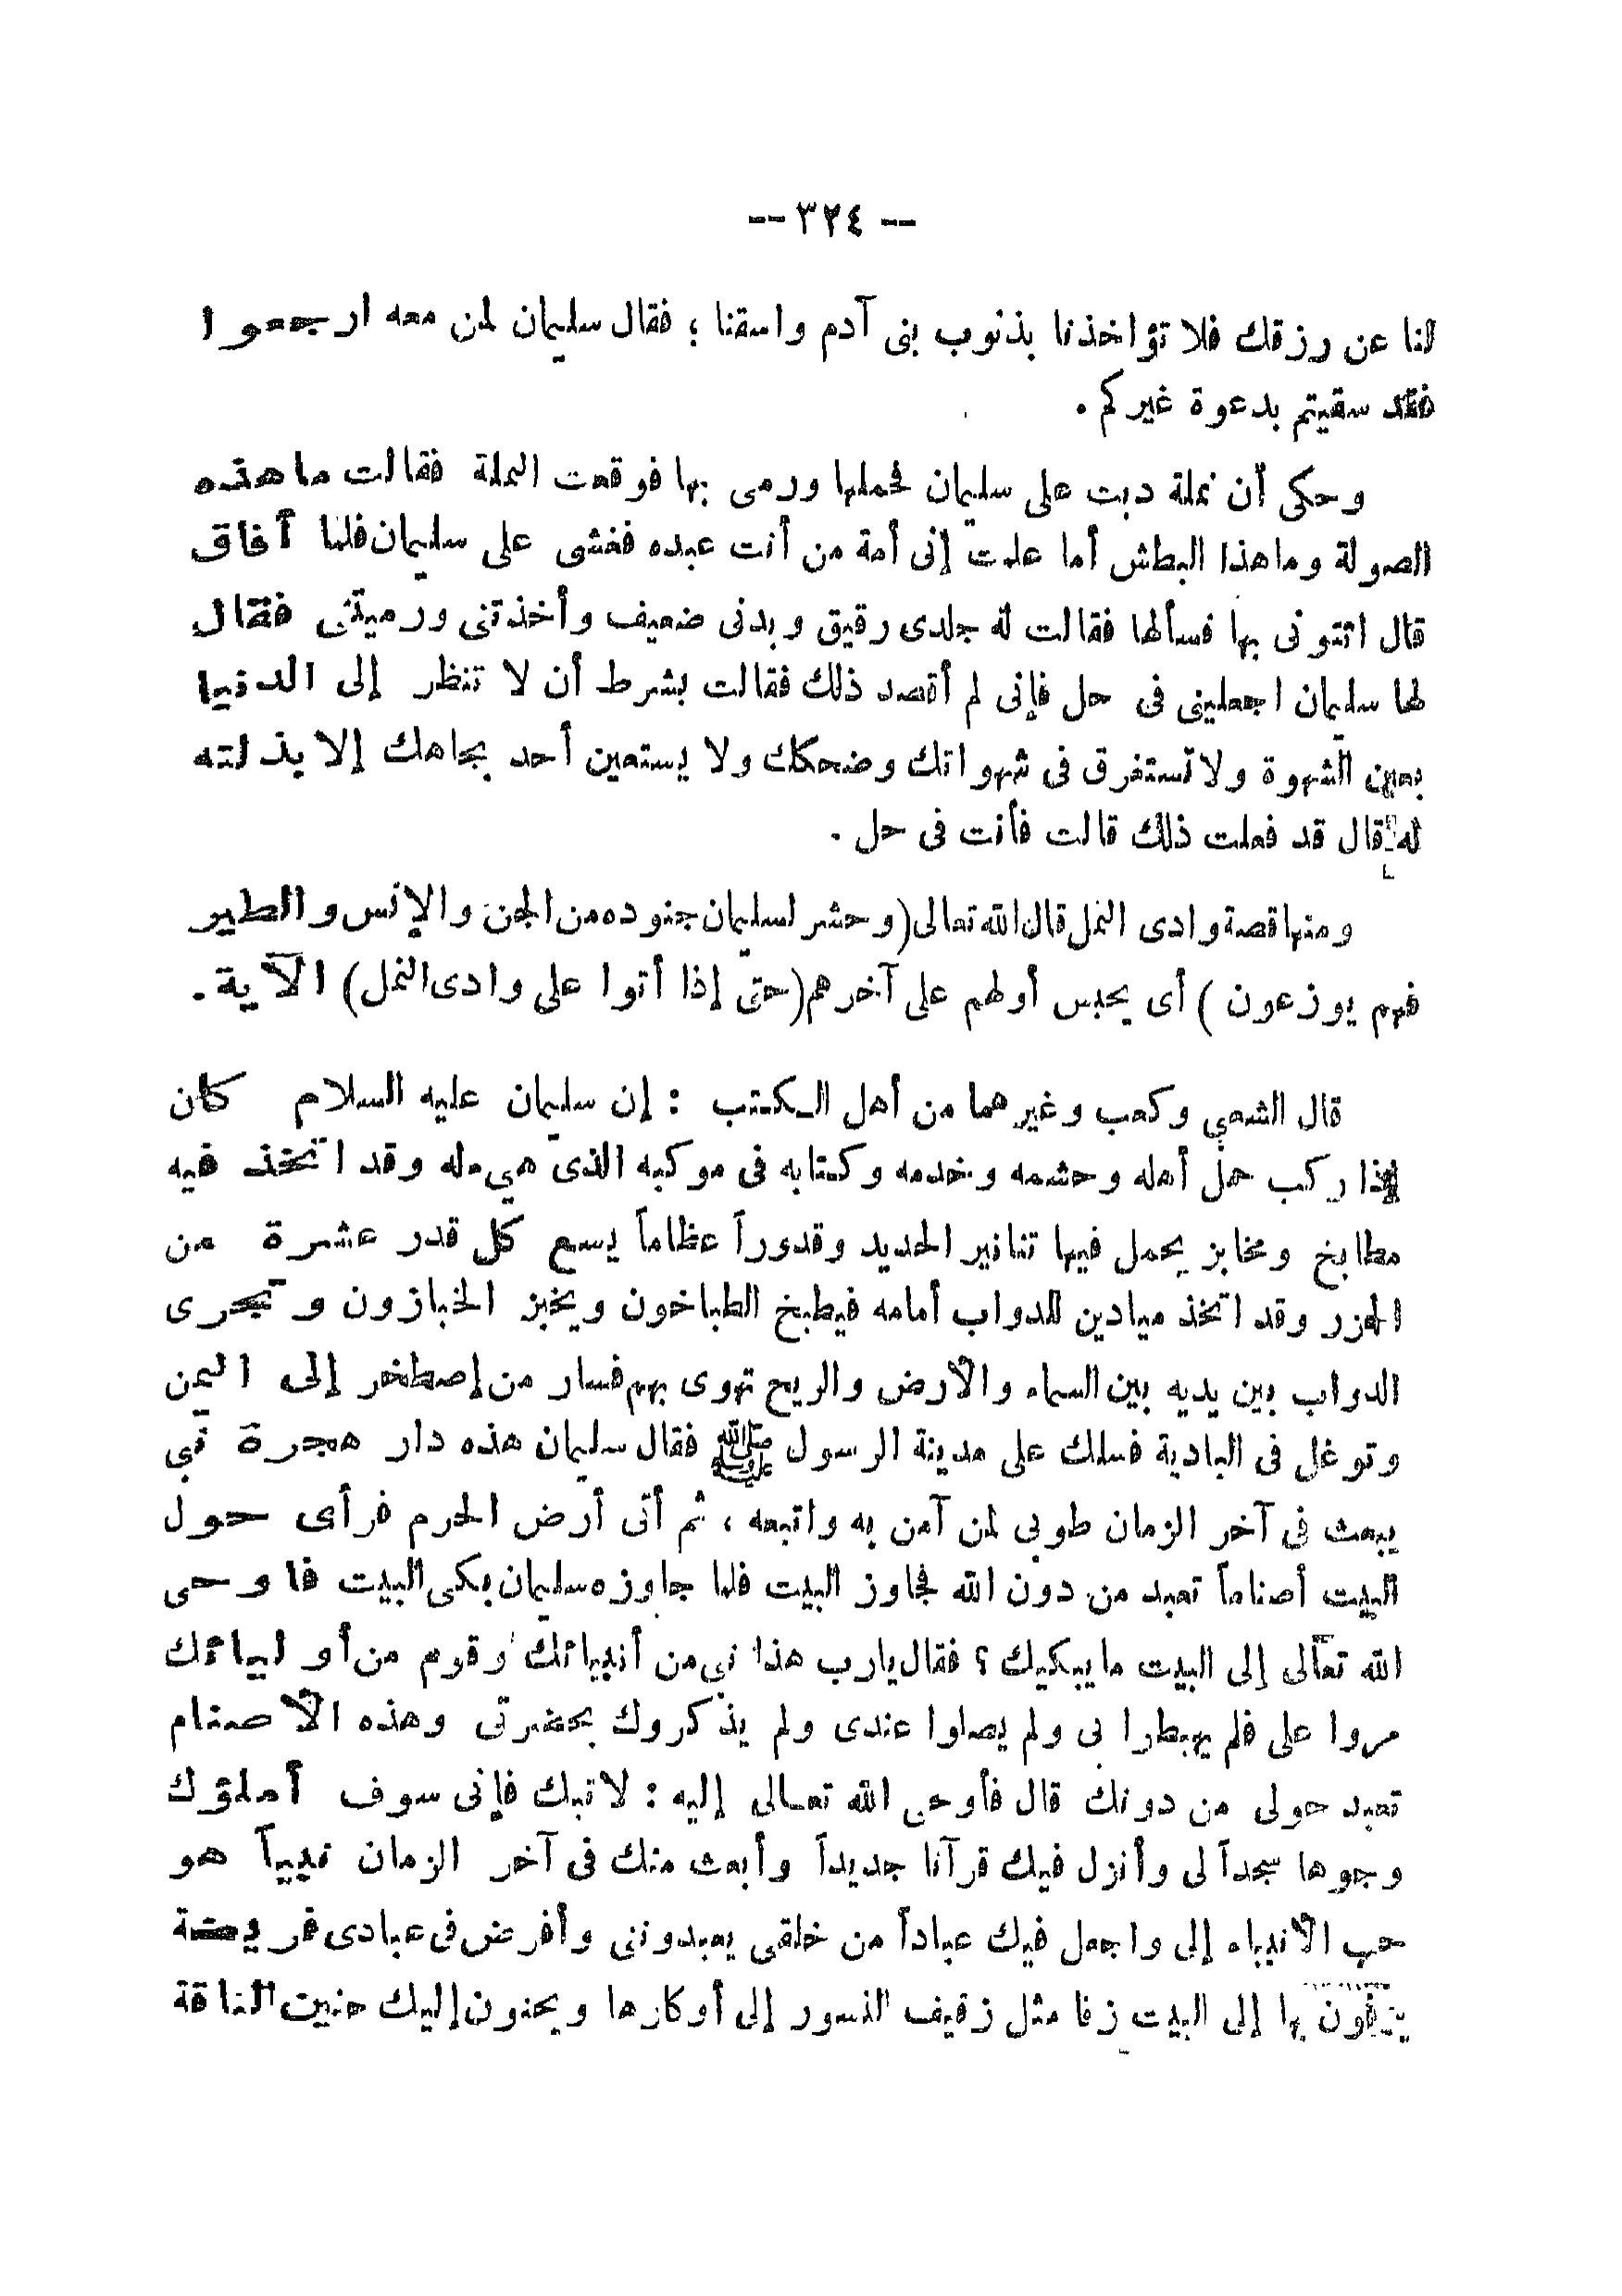 -- ٣٢٤ --
لنا عن رزقك فلا تؤاخذنا بذنوب بنى آدم واسقنا ؛ فقال سليمان لمن معه ارجعوا
فقد سقيتم بدعوة غيركم .
وحكى أن نملة دبت على سليمان فحملها ورمى بها فوقعت النملة فقالت ما هذه
الصولة وما هذا البطش أما علمت إنى أمة من أنت عبده فغشى على سليمان فلما أفاق
قال ائتونى بها فسألها فقالت له جلدى رقيق وبدنى ضعيف وأخذتنى ورميتنى فقال
لها سليمان اجعلينى فى حل فإنى لم أقصد ذلك فقالت بشرط أن لا تنظر إلى الدنيا
بعين الشهوة ولا تستغرق فى شهواتك وضحكك ولا يستعين أحد بجاهك إلا بذلته
له قال قد فعلت ذلك قالت فأنت فى حل .
ومنها قصة وادى النمل قال الله تعالى (وحشر لسليمان جنوده من الجن والإنس والطير
فهم يوزعون ) أى يحبس أولهم على آخرهم (حتى إذا أتوا على وادى النمل) الآية .
قال الشعبي وكعب وغيرهما من أهل الكتب : إن سليمان عليه السلام كان
إذا ركب حمل أهله وحشمه وخدمه وكتابه فى موكبه الذى هيء له وقد اتخذ فيه
مطابخ ومخابز يحمل فيها تنانير الحديد وقدوراً عظاماً يسع كل قدر عشرة من
الجزر وقد اتخذ ميادين للدواب أمامه فيطبخ الطباخون ويخبز الخبازون وتجرى
الدواب بين يديه بين السماء والأرض والريح تهوى بهم فسار من إصطخر إلى اليمن
وتوغل فى البادية فسلك على مدينة الرسول ﷺ فقال سليمان هذه دار هجرة نبي
يبعث فى آخر الزمان طوبى لمن آمن به واتبعه ، ثم أتى أرض الحرم فرأى حول
البيت أصناماً تعبد من دون الله فجاوز البيت فلما جاوزه سليمان بكى البيت فاوحى
الله تعالى إلى البيت ما يبكيك ؟ فقال يارب هذا نبي من أنبيائك وقوم من أوليائك
مروا على فلم يهبطوا بى ولم يصلوا عندى ولم يذكروك بحضرتى وهذه الأصنام
تعبد حولى من دونك قال فأوحى الله تعالى إليه : لا تبك فإنى سوف أملؤك
وجوها سجداً لى وأنزل فيك قرآنا جديداً وأبعث منك فى آخر الزمان نبياً هو
حب الأنبياء إلى واجعل فيك عباداً من خلقى يعبدوننى وأفرض فى عبادى فريضة
يزفون بها إلى البيت زفا مثل زفيف النسور إلى أوكارها ويحنون إليك حنين الناقة